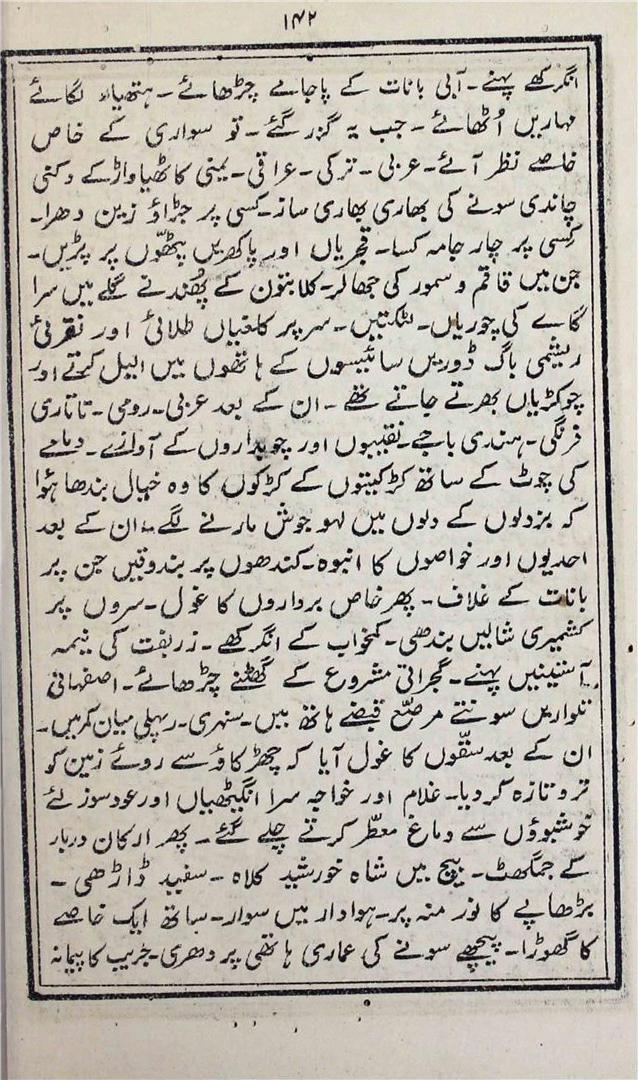 ۱۴۲
انگرکھے پہنے۔ آبی بانات کے پاجامے چڑھائے۔ ہتھیار لگائے
مہاریں اُٹھائے۔ جب یہ گزر گئے۔ تو سواری کے خاص
خاصے نظر آئے۔ عربی۔ ترکی۔ عراقی۔ یمنی کاٹھیاواڑکے دکنی
چاندی سونے کی بھاری بھاری ساز۔ کسی پر جڑاؤ زین دھرا۔
کسی پر چار جامہ کسا۔ قجریاں اور پاکھریں پٹھّوں پر پڑیں۔
جن میں قاقم و سمور کی جھالر۔ کلابتون کے پھُندنے گلے میں سرا
گاے کی چوریاں۔ لٹکتیں۔ سر پر کلغیاں طلائی اور نقرئی
ریشمی باگ ڈوریں سائیسوں کے ہاتھوں میں الیل کرتے اور
چوکڑیاں بھرتے جاتے تھے۔ ان کے بعد عربی۔ رومی۔ تاتاری
فرنگی۔ ہندی باجے۔ نقیبوں اور چوبداروں کے آوازے۔ دمامے
کی چوٹ کے ساتھ کڑکیتوں کے کڑکوں کا وہ خیال بندھا ہوٗا
کہ بزدلوں کے دلوں میں لہو جوش مارنے لگے۔ ان کے بعد
احدیوں اور خواصوں کا انبوہ۔ کندھوں پر بندوقیں جن پر
بانات کے غلاف۔ پھر خاص برداروں کا غول۔ سروں پر
کشمیری شالیں بندھی۔ کمخواب کے انگرکھے۔ زربفت کی نیمہ
آستینیں پہنے۔ گجراتی مشروع کے گھٹنے چڑھائے۔ اصفہانی
تلواریں سونتے مرصّع قبضے ہاتھ میں۔ سنہری۔ رپہلی میان کمرمیں۔
ان کے بعد سقّوں کا غول آیا کہ چھڑکاؤ سے روئے زمین کو
تروتازہ کر دیا۔ غلام اور خواجہ سرا انگیٹھیاں اور عود سوز لئے
خوشبوؤں سے دماغ معطّر کرتے چلے گئے۔ پھر ارکان دربار
کے جمگھٹ۔ بیچ میں شاہ خورشید کلاہ۔ سفید ڈاڑھی۔
بڑھاپے کا نور منہ پر۔ ہوادار میں سوار۔ ساتھ ایک خاصے
کا گھوڑا۔ پیچھے سونے کی عماری ہاتھی پر دھری۔ جریب کا پیمانہ